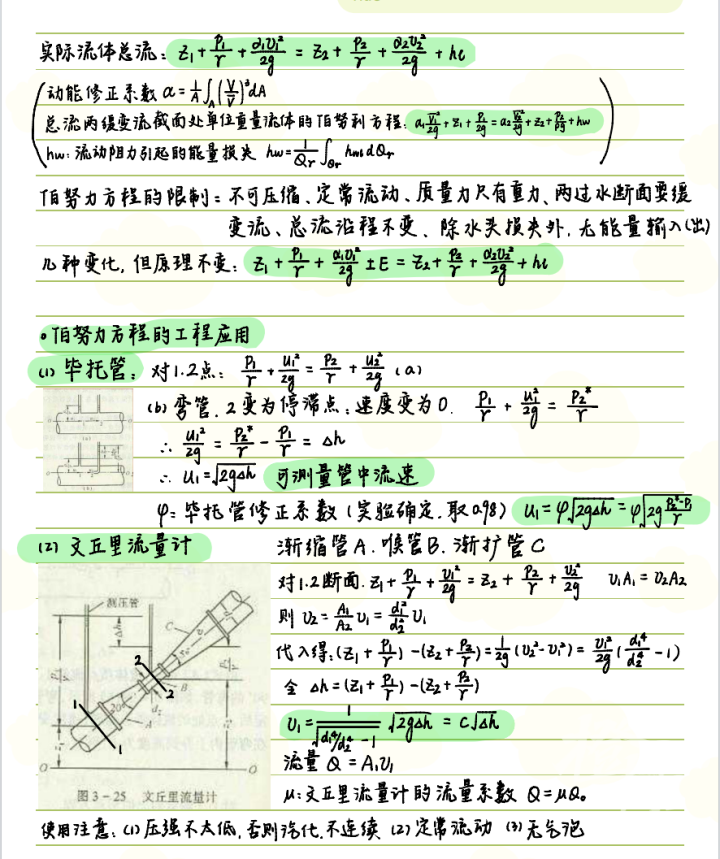 实际流体总流: z₁+p₁/γ+α₁υ₁²/2g = z₂+p₂/γ+α₂υ₂²/2g+hₗ
动能修正系数 α=1/A∫_A(V/V̄)³dA
总流两缓变流截面处单位重量流体的伯努利方程: a₁V̄₁²/2g+z₁+p₁/ρg=a₂V̄₂²/2g+z₂+p₂/ρg+hw
hw: 流动阻力引起的能量损失 hw=1/Qr∫_Qr hwₗdQr
伯努力方程的限制: 不可压缩、定常流动、质量力只有重力、两过水断面要缓
变流、总流沿程不变、除水头损失外,无能量输入(出)
几种变化,但原理不变: z₁+p₁/γ+α₁υ₁²/2g±E=z₂+p₂/γ+α₂υ₂²/2g+hₗ
。伯努力方程的工程应用
(1) 毕托管: 对1.2点: p₁/γ+u₁²/2g=p₂/γ+u₂²/2g (a)
(b) 弯管,2变为停滞点:速度变为0. p₁/γ+u₁²/2g=p₂*/γ
∴ u₁²/2g=p₂*/γ-p₁/γ=Δh
∴ u₁=√2gΔh 可测量管中流速
φ: 毕托管修正系数(实验确定,取0.98) u₁=φ√2gΔh=φ√2g(p₂*-p₁)/γ
(2) 文丘里流量计 渐缩管A.喉管B.渐扩管C
对1.2断面. z₁+p₁/γ+υ₁²/2g=z₂+p₂/γ+υ₂²/2g υ₁A₁=υ₂A₂
则 υ₂=A₁/A₂υ₁=d₁²/d₂²υ₁
代入得: (z₁+p₁/γ)-(z₂+p₂/γ)=1/2g(υ₂²-υ₁²)=υ₁²/2g(d₁⁴/d₂⁴-1)
令 Δh=(z₁+p₁/γ)-(z₂+p₂/γ)
υ₁=1/√(d₁⁴/d₂⁴-1)√2gΔh=c√Δh
流量 Q=A₁υ₁
μ: 文丘里流量计的流量系数 Q=μQ₀
测压管
Δh
C
B
d₂
2
2
1
1
O
O
图3-25 文丘里流量计
使用注意: (1) 压强不太低,否则汽化,不连续 (2) 定常流动 (3) 无气泡